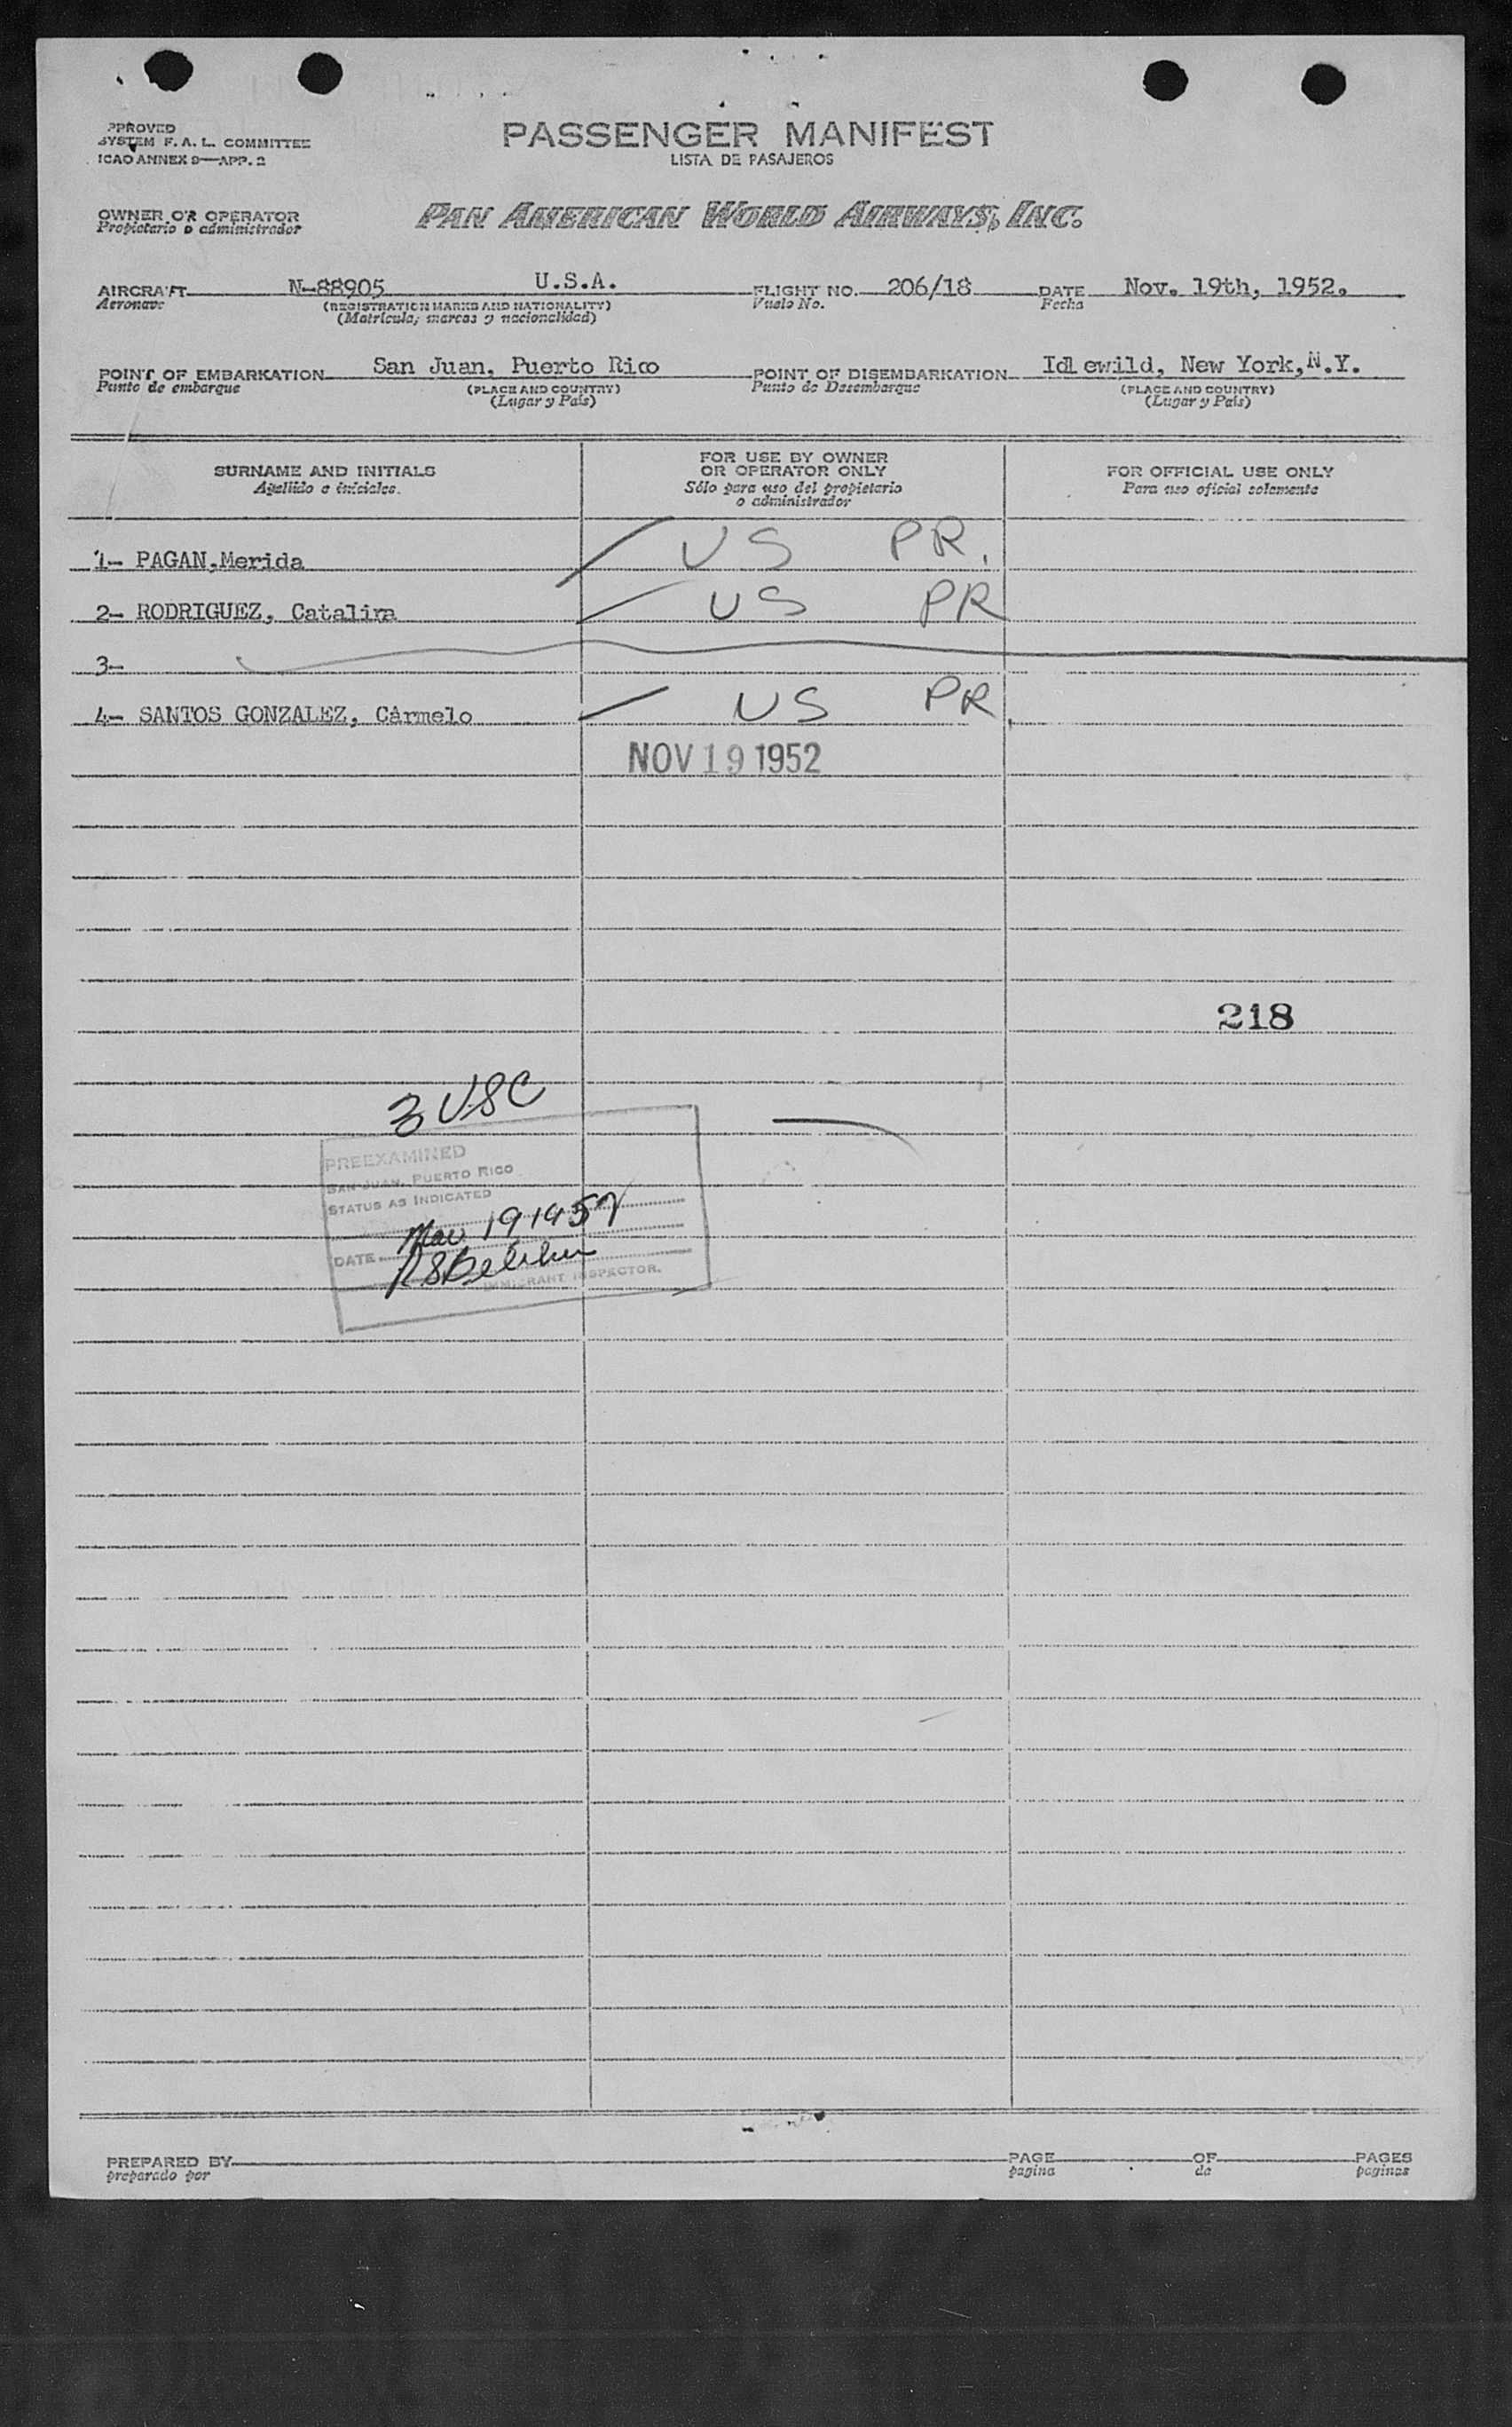 PPROVED
SYSTEM F. A. L. COMMITTEE
ICAO ANNEX 9—APP. 2
PASSENGER MANIFEST
LISTA DE PASAJEROS
OWNER OR OPERATOR
Propietario o administrador
PAN AMERICAN WORLD AIRWAYS, INC.
AIRCRAFT N-88905 U.S.A. FLIGHT NO. 206/18 DATE Nov. 19th, 1952.
Aeronave (REGISTRATION MARKS AND NATIONALITY) Vuelo No. Fecha
(Matrícula, marcas y nacionalidad)
POINT OF EMBARKATION San Juan, Puerto Rico POINT OF DISEMBARKATION Idlewild, New York, N.Y.
Punto de embarque (PLACE AND COUNTRY) Punto de Desembarque (PLACE AND COUNTRY)
(Lugar y País) (Lugar y País)
SURNAME AND INITIALS
Apellido e iniciales.
FOR USE BY OWNER
OR OPERATOR ONLY
Sólo para uso del propietario
o administrador
FOR OFFICIAL USE ONLY
Para uso oficial solamente
1- PAGAN,Merida US PR.
2- RODRIGUEZ, Catalina US PR
3-
4- SANTOS GONZALEZ, Carmelo US PR.
NOV 19 1952
218
3 USC
PREEXAMINED
SAN JUAN, PUERTO RICO
STATUS AS INDICATED
DATE Nov 19 1952
IMMIGRANT INSPECTOR.
PREPARED BY PAGE OF PAGES
preparado por pagina de paginas